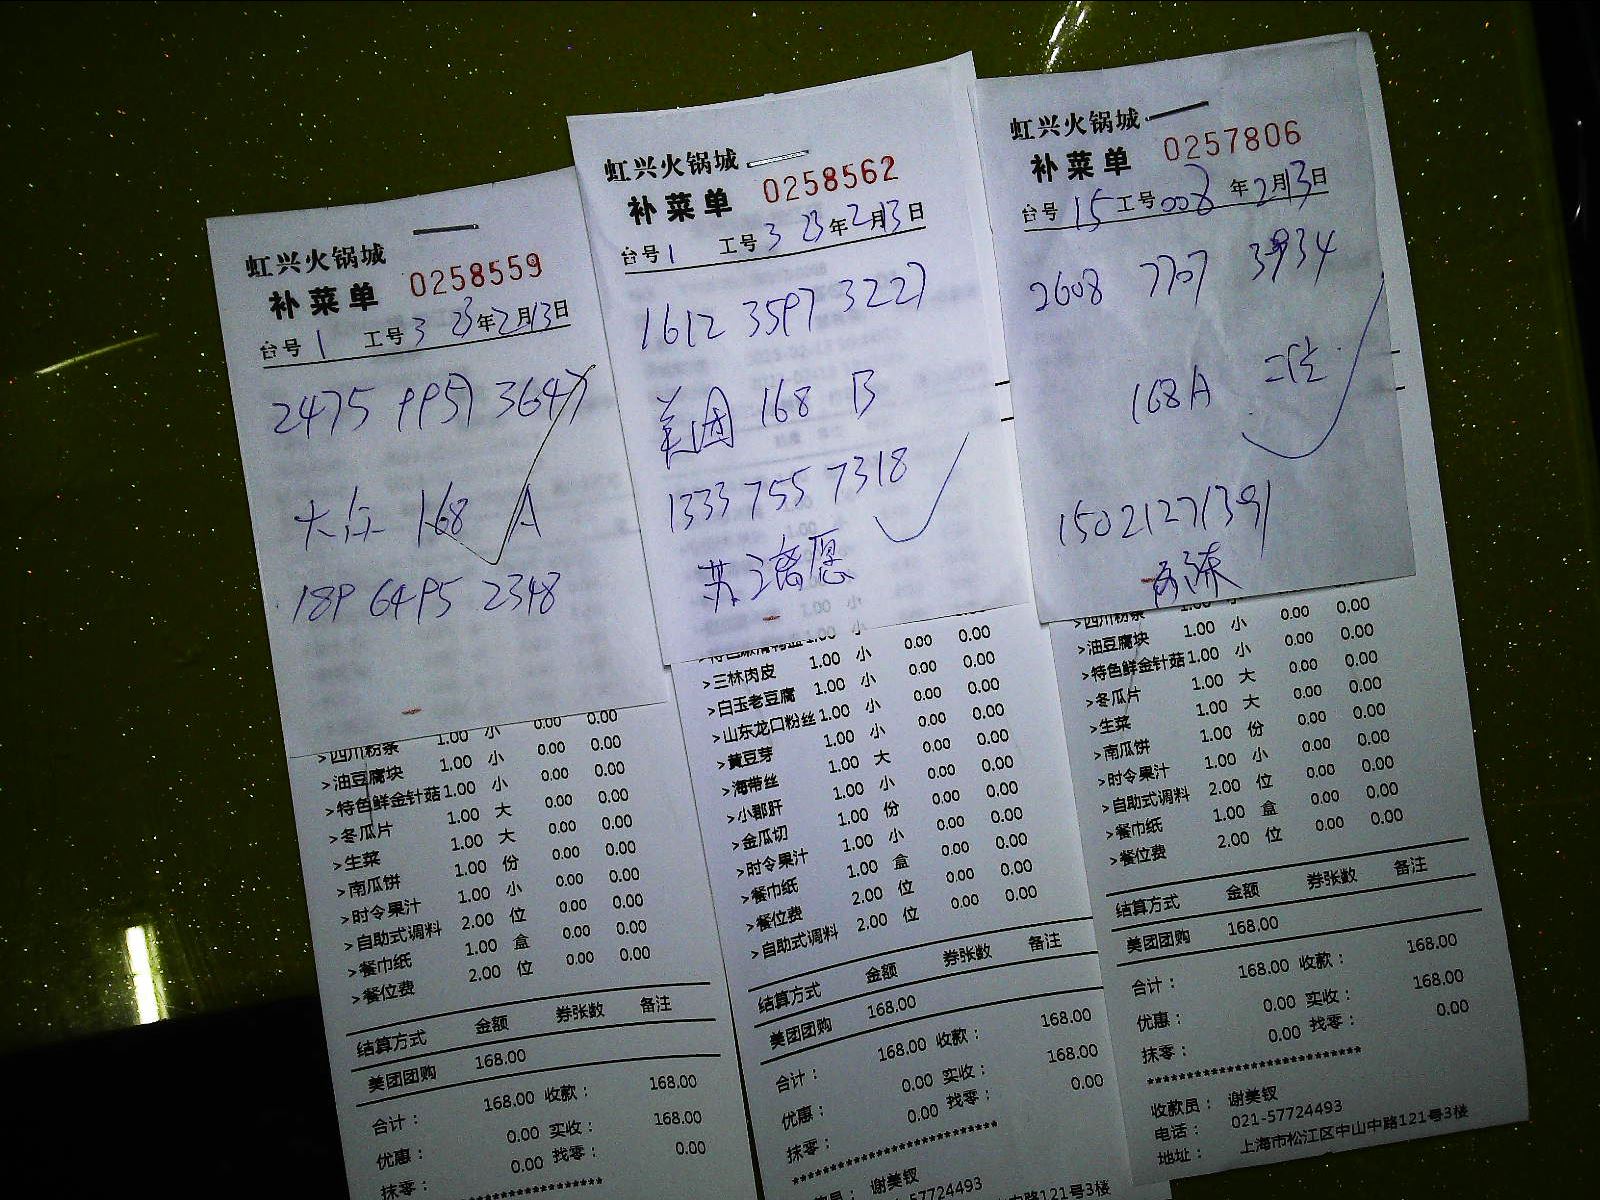 虹兴火锅城
补菜单 0258559
台号 1 工号 3 23年2月13日
2475 9957 3647
大众 168 A
189 6495 2348
>四川粉条 1.00 小 0.00 0.00
>油豆腐块 1.00 小 0.00 0.00
>特色鲜金针菇 1.00 小 0.00 0.00
>冬瓜片 1.00 大 0.00 0.00
>生菜 1.00 大 0.00 0.00
>南瓜饼 1.00 份 0.00 0.00
>时令果汁 1.00 小 0.00 0.00
>自助式调料 2.00 位 0.00 0.00
>餐巾纸 1.00 盒 0.00 0.00
>餐位费 2.00 位 0.00 0.00
结算方式 金额 券张数 备注
美团团购 168.00
合计： 168.00 收款： 168.00
优惠： 0.00 实收： 168.00
抹零： 0.00 找零： 0.00
虹兴火锅城
补菜单 0258562
台号 1 工号 3 23年2月13日
1612 3597 3227
美团 168 B
1333 755 7318
>三林肉皮 1.00 小 0.00 0.00
>白玉老豆腐 1.00 小 0.00 0.00
>山东龙口粉丝 1.00 小 0.00 0.00
>黄豆芽 1.00 小 0.00 0.00
>海带丝 1.00 大 0.00 0.00
>小郡肝 1.00 小 0.00 0.00
>金瓜切 1.00 份 0.00 0.00
>时令果汁 1.00 小 0.00 0.00
>餐巾纸 1.00 盒 0.00 0.00
>餐位费 2.00 位 0.00 0.00
>自助式调料 2.00 位 0.00 0.00
结算方式 金额 券张数 备注
美团团购 168.00
合计： 168.00 收款： 168.00
优惠： 0.00 实收： 168.00
抹零： 0.00 找零： 0.00
******************************
员： 谢美钗
-57724493
中路121号3楼
虹兴火锅城
补菜单 0257806
台号 15 工号 008 年2月13日
2608 7707 3934
168A
15021271391
>四川粉条 1.00 小 0.00 0.00
>油豆腐块 1.00 小 0.00 0.00
>特色鲜金针菇 1.00 小 0.00 0.00
>冬瓜片 1.00 大 0.00 0.00
>生菜 1.00 大 0.00 0.00
>南瓜饼 1.00 份 0.00 0.00
>时令果汁 1.00 小 0.00 0.00
>自助式调料 2.00 位 0.00 0.00
>餐巾纸 1.00 盒 0.00 0.00
>餐位费 2.00 位 0.00 0.00
结算方式 金额 券张数 备注
美团团购 168.00
合计： 168.00 收款： 168.00
优惠： 0.00 实收： 168.00
抹零： 0.00 找零： 0.00
******************************
收款员： 谢美钗
电话： 021-57724493
地址： 上海市松江区中山中路121号3楼